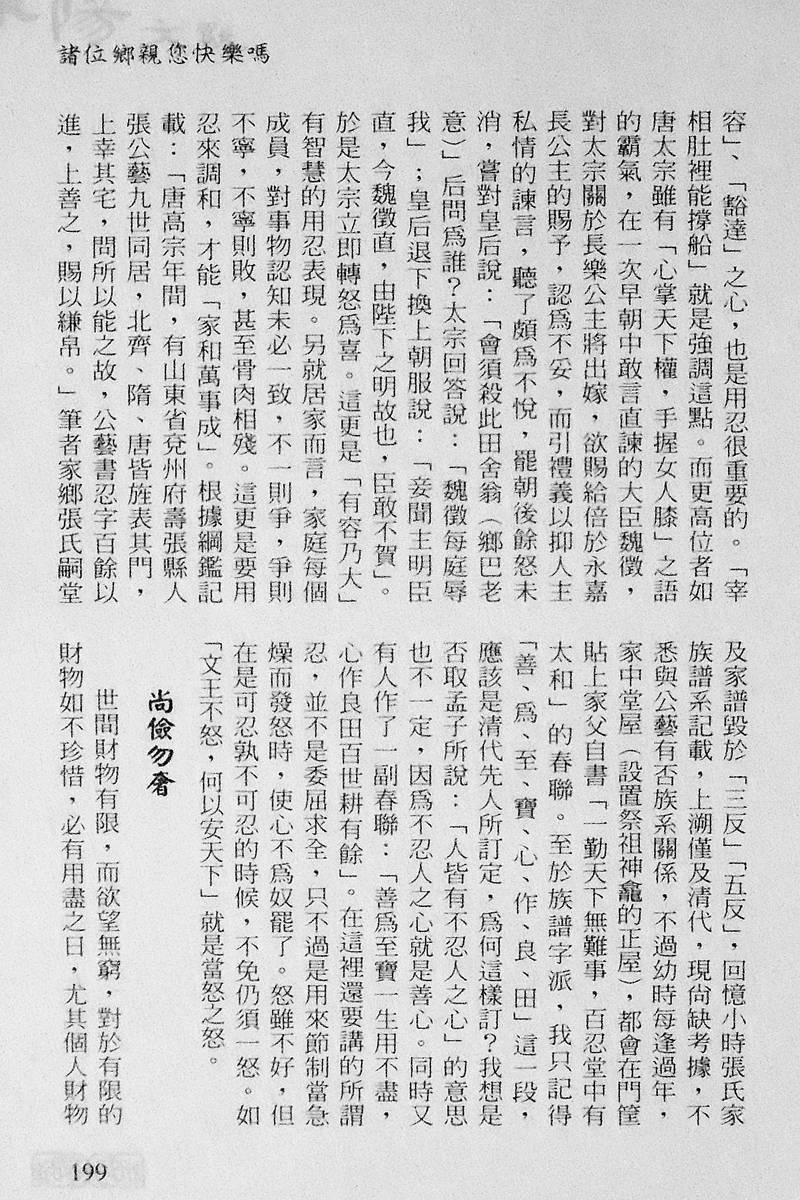 諸位鄉親您快樂嗎
容」、「豁達」之心，也是用忍很重要的。「宰
相肚裡能撐船」就是強調這點。而更高位者如
唐太宗雖有「心掌天下權，手握女人膝」之語
的霸氣，在一次早朝中敢言直諫的大臣魏徵，
對太宗關於長樂公主將出嫁，欲賜給倍於永嘉
長公主的賜予，認爲不妥，而引禮義以抑人主
私情的諫言，聽了頗爲不悅，罷朝後餘怒未
消，嘗對皇后說：「會須殺此田舍翁（鄉巴老
意）」后問爲誰？太宗回答說：「魏徵每庭辱
我」；皇后退下換上朝服說：「妾聞主明臣
直，今魏徵直，由陛下之明故也，臣敢不賀」。
於是太宗立即轉怒爲喜。這更是「有容乃大」
有智慧的用忍表現。另就居家而言，家庭每個
成員，對事物認知未必一致，不一則爭，爭則
不寧，不寧則敗，甚至骨肉相殘。這更是要用
忍來調和，才能「家和萬事成」。根據綱鑑記
載：「唐高宗年間，有山東省兗州府壽張縣人
張公藝九世同居，北齊、隋、唐皆旌表其門，
上幸其宅，問所以能之故，公藝書忍字百餘以
進，上善之，賜以縑帛。」筆者家鄉張氏嗣堂
及家譜毀於「三反」「五反」，回憶小時張氏家
族譜系記載，上溯僅及清代，現尙缺考據，不
悉與公藝有否族系關係，不過幼時每逢過年，
家中堂屋（設置祭祖神龕的正屋），都會在門筐
貼上家父自書「一勤天下無難事，百忍堂中有
太和」的春聯。至於族譜字派，我只記得
「善、爲、至、寶、心、作、良、田」這一段，
應該是清代先人所訂定，爲何這樣訂？我想是
否取孟子所說：「人皆有不忍人之心」的意思
也不一定，因爲不忍人之心就是善心。同時又
有人作了一副春聯：「善爲至寶一生用不盡，
心作良田百世耕有餘」。在這裡還要講的所謂
忍，並不是委屈求全，只不過是用來節制當急
燥而發怒時，使心不爲奴罷了。怒雖不好，但
在是可忍孰不可忍的時候，不免仍須一怒。如
「文王不怒，何以安天下」就是當怒之怒。
尚儉勿奢
世間財物有限，而欲望無窮，對於有限的
財物如不珍惜，必有用盡之日，尤其個人財物
199